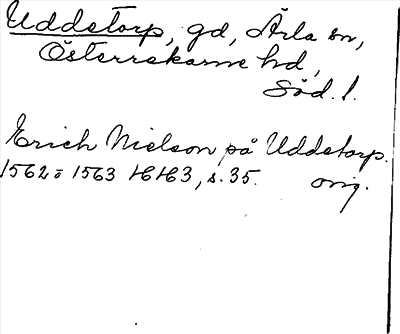 Uddetorp, gd, Ärla sn,
Österrekarne hd,
Söd. l.
Erich Nielson på Uddetorp.
1562 = 1563 HH3, s. 35. orig.